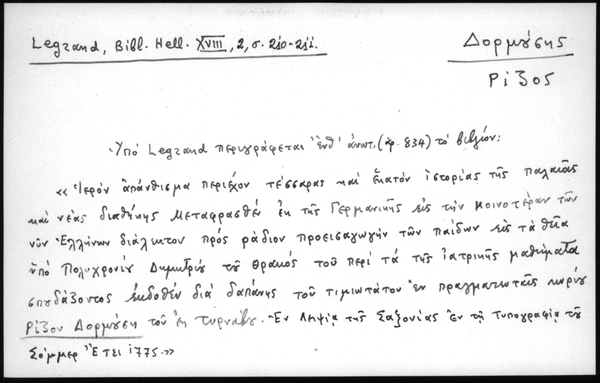 Legrand, Bibl. Hell. XVIII, 2, σ. 210-211.
Δορμούσης
Ρίζος
Ὑπό Legrand περιγράφεται ἔνθ' ἀνωτ. (ἀρ. 834) τό βιβλίον:
«Ἱερόν ἀπάνθισμα περιέχον τέσσαρας καί ἑκατόν ἱστορίας τῆς παλαιᾶς
καί νέας διαθήκης μεταφρασθέν ἐκ τῆς Γερμανικῆς εἰς τήν κοινοτέραν τῶν
νῦν Ἑλλήνων διάλεκτον πρός ῥάδιον προεισαγωγήν τῶν παίδων εἰς τά θεῖα
ὑπό Πολυχρονίου Δημητρίου τοῦ Θρακός τοῦ περί τά τῆς ἰατρικῆς μαθήματα
σπουδάζοντος ἐκδοθέν διά δαπάνης τοῦ τιμιωτάτου ἐν πραγματευταῖς κυρίου
Ρίζου Δορμούση τοῦ ἐκ Τυρνάβου. Ἐν Λειψίᾳ τῆς Σαξονίας Ἐν τῇ Τυπογραφίᾳ τοῦ
Σόμμερ Ἔτει 1775.»